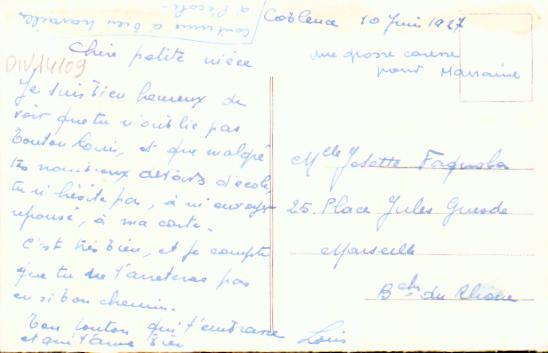 continue à bien travailler
à l'école
Coblence 10 Juin 1927
une grosse caresse
pour Marraine
DIV14109
Chère petite nièce
Je suis bien heureux de
voir que tu n'oublie pas
Tonton Louis, et que malgré
tes nombreux devoirs d'école,
tu n'hésite pas, à m'envoyer
reponse, à ma carte.
C'est très bien, et je compte
que tu ne t'arreteras pas
en si bon chemin.
Ton tonton qui t'embrasse
et qui t'aime bien
Louis
Melle Josette
25. Place Jules Guesde
Marseille
Bches du Rhône